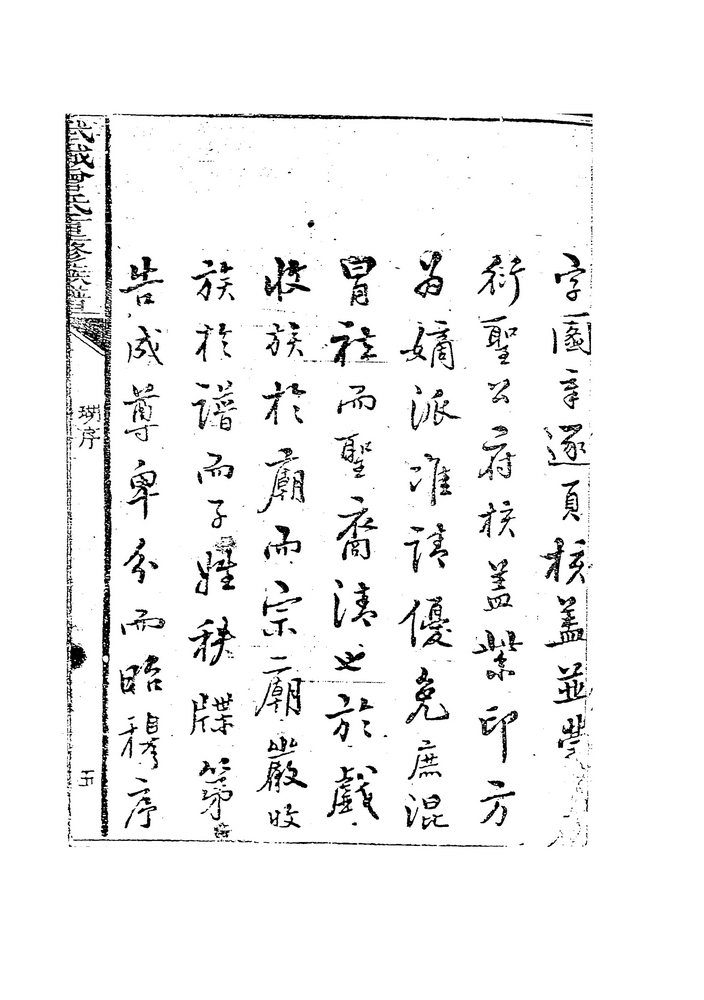 字圖章逐頁核蓋並
衍聖公府核蓋紫印方
為嫡派准請優免庶混
冒祛而聖裔清也於戲
收族於廟而宗廟嚴收
族於譜而子姓秩牒第
告成尊卑分而昭穆序
武城曾氏重修族譜
序
五